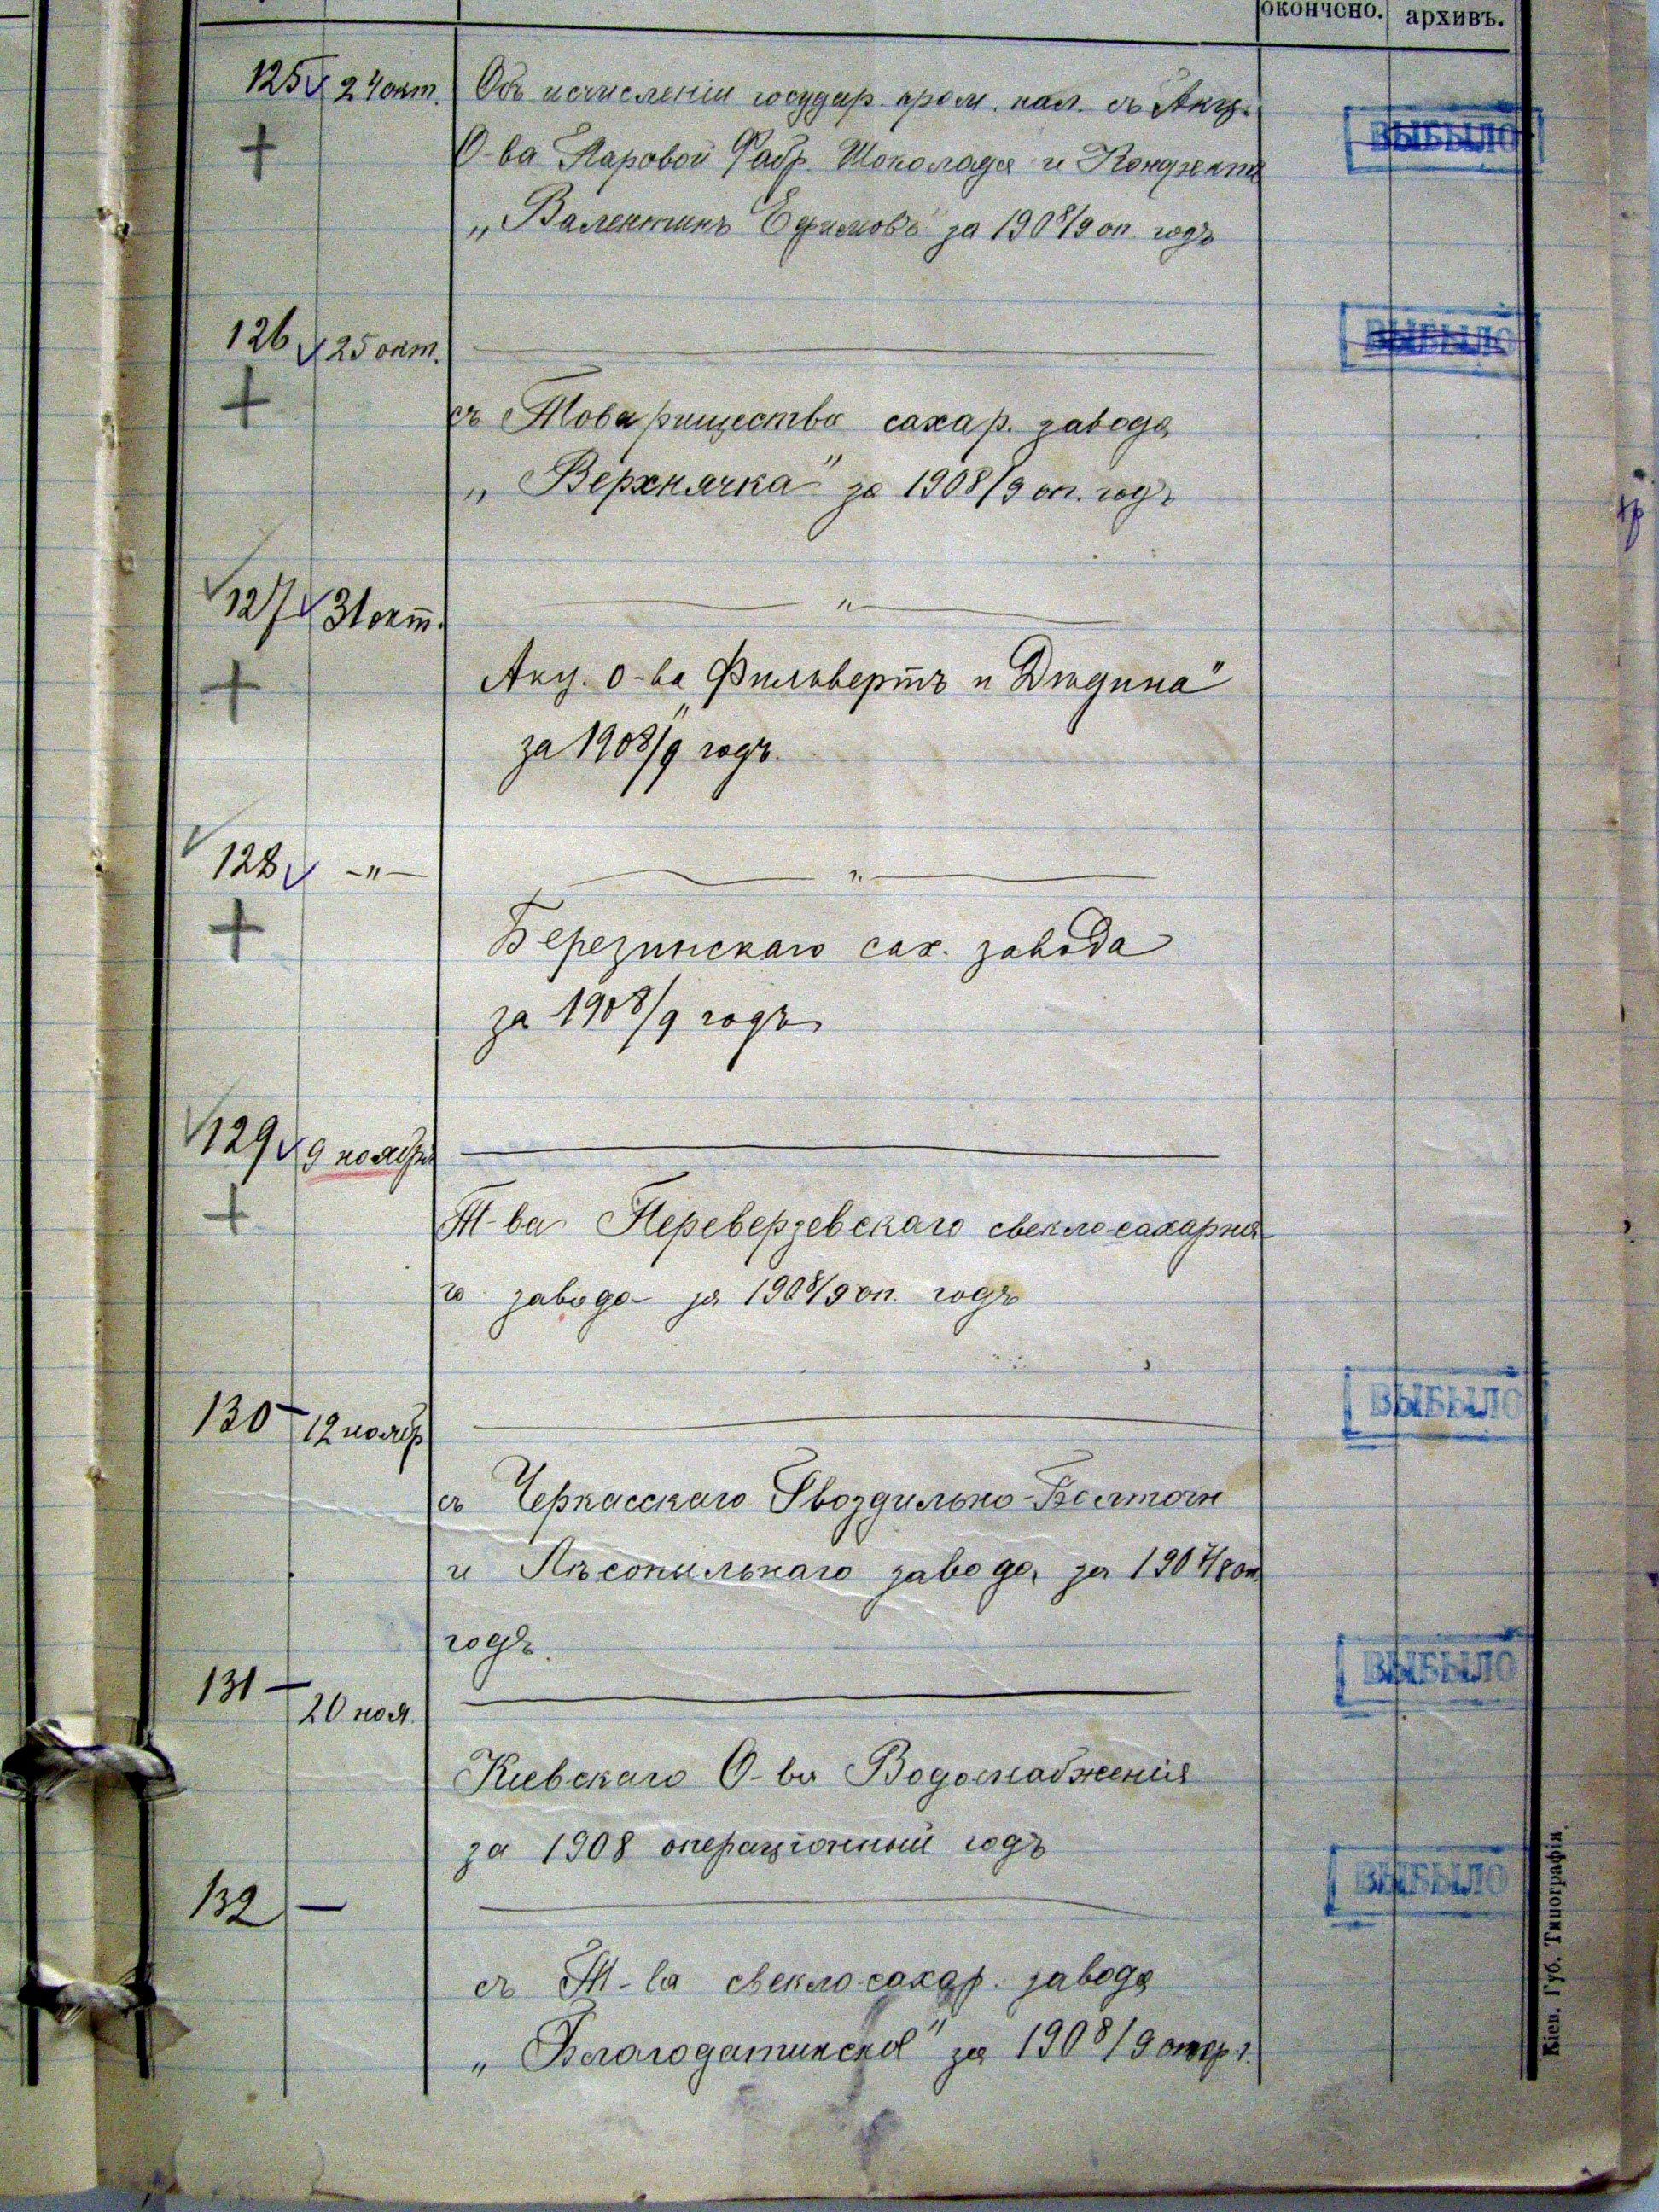 окончено. архивъ.
125 24 окт. Объ исчисленіи государ. пром. нал. съ Акц.
О-ва Паровой Фабр. Шоколада и Конфектъ
„Валентинъ Ефимовъ" за 1908/9 оп. годъ
ВЫБЫЛО
126 25 окт.
ВЫБЫЛО
съ Товарищества сахар. завода
„Верхнячка" за 1908/9 оп. годъ
127 31 окт. "
Акц. О-ва „Фильвертъ и Дѣдина"
за 1908/9 годъ.
128 -"- "
Березинскаго сах. завода
за 1908/9 годъ
129 9 ноября
Т-ва Переверзевскаго свекло-сахарна-
го завода за 1908/9 оп. годъ
130 12 ноябр
ВЫБЫЛО
съ Черкасскаго Гвоздильно-Болточн
и Лѣсопильнаго завода, за 1907/8 оп.
годъ.
131 20 ноя.
ВЫБЫЛО
Кіевскаго О-ва Водоснабженія
за 1908 операціонный годъ
132 —
ВЫБЫЛО
съ Т-ва свекло-сахар. завода
„Благодатинское" за 1908/9 опер. г.
Кіев. Губ. Типографія.